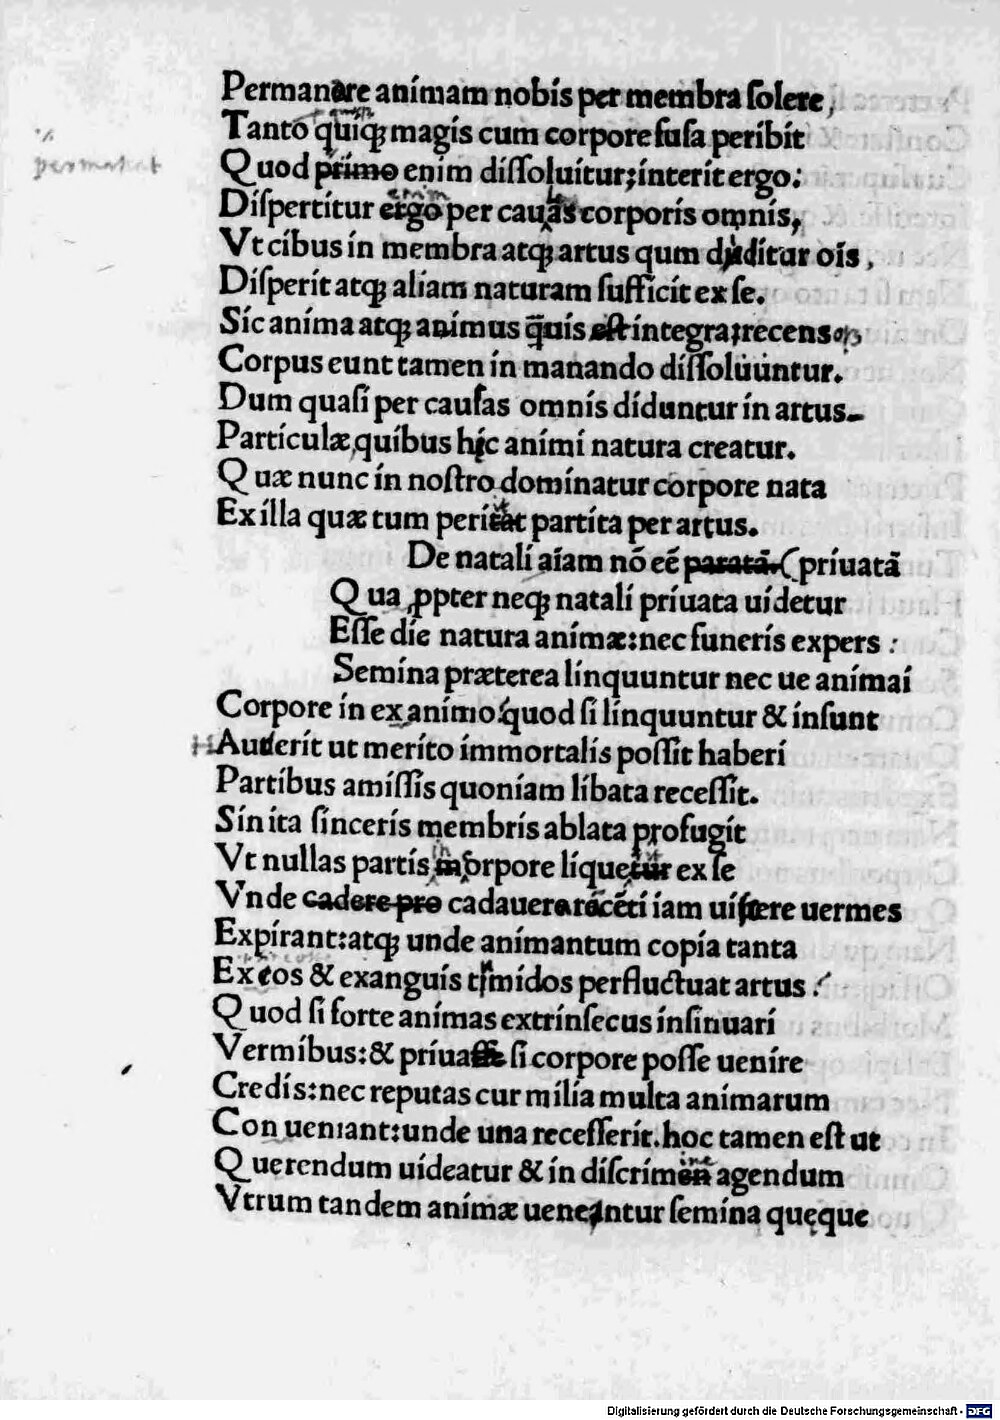 Permanare animam nobis per membra ſolere,
Tanto quiqꝫ magis cum corpore fuſa peribit
permanat
Quod primo enim diſſoluitur;interit ergo:
Diſpertitur ergo per cauas corporis omnis,
Vt cibus in membra atqꝫ artus qum diditur oīs,
Diſperit atqꝫ aliam naturam ſufficit ex ſe.
Sic anima atqꝫ animus q̄uis eſt integra;recens
Corpus eunt tamen in manando diſſoluuntur.
Dum quaſi per cauſas omnis diduntur in artus
Particulæ,quibus hęc animi natura creatur.
Quæ nunc in noſtro dominatur corpore nata
Ex illa quæ tum peritat partita per artus.
De natali aīam nō eē paratā. (priuatā
Qua ꝓpter neqꝫ natali priuata uidetur
Eſſe die natura animæ:nec funeris expers :
Semina præterea linquuntur nec ue animai
Corpore in exanimo:quod ſi linquuntur & inſunt
H Auderit ut merito immortalis poſſit haberi
Partibus amiſſis quoniam libata receſſit.
Sin ita ſinceris membris ablata profugit
Vt nullas partis in corpore liquetur ex ſe
Vnde cadere pro cadauera rēcēti iam uiſcere uermes
Expirant:atqꝫ unde animantum copia tanta
Ex eos & exanguis timidos perfluctuat artus :
Quod ſi forte animas extrinſecus inſinuari
Vermibus:& priuaſſe ſi corpore poſſe uenire
Credis:nec reputas cur milia multa animarum
Con ueniant:unde una receſſerit.hoc tamen eſt ut
Querendum uideatur & in diſcrimen agendum
Vtrum tandem animæ ueneantur ſemina quęque
Digitalisierung gefördert durch die Deutsche Forschungsgemeinschaft - DFG